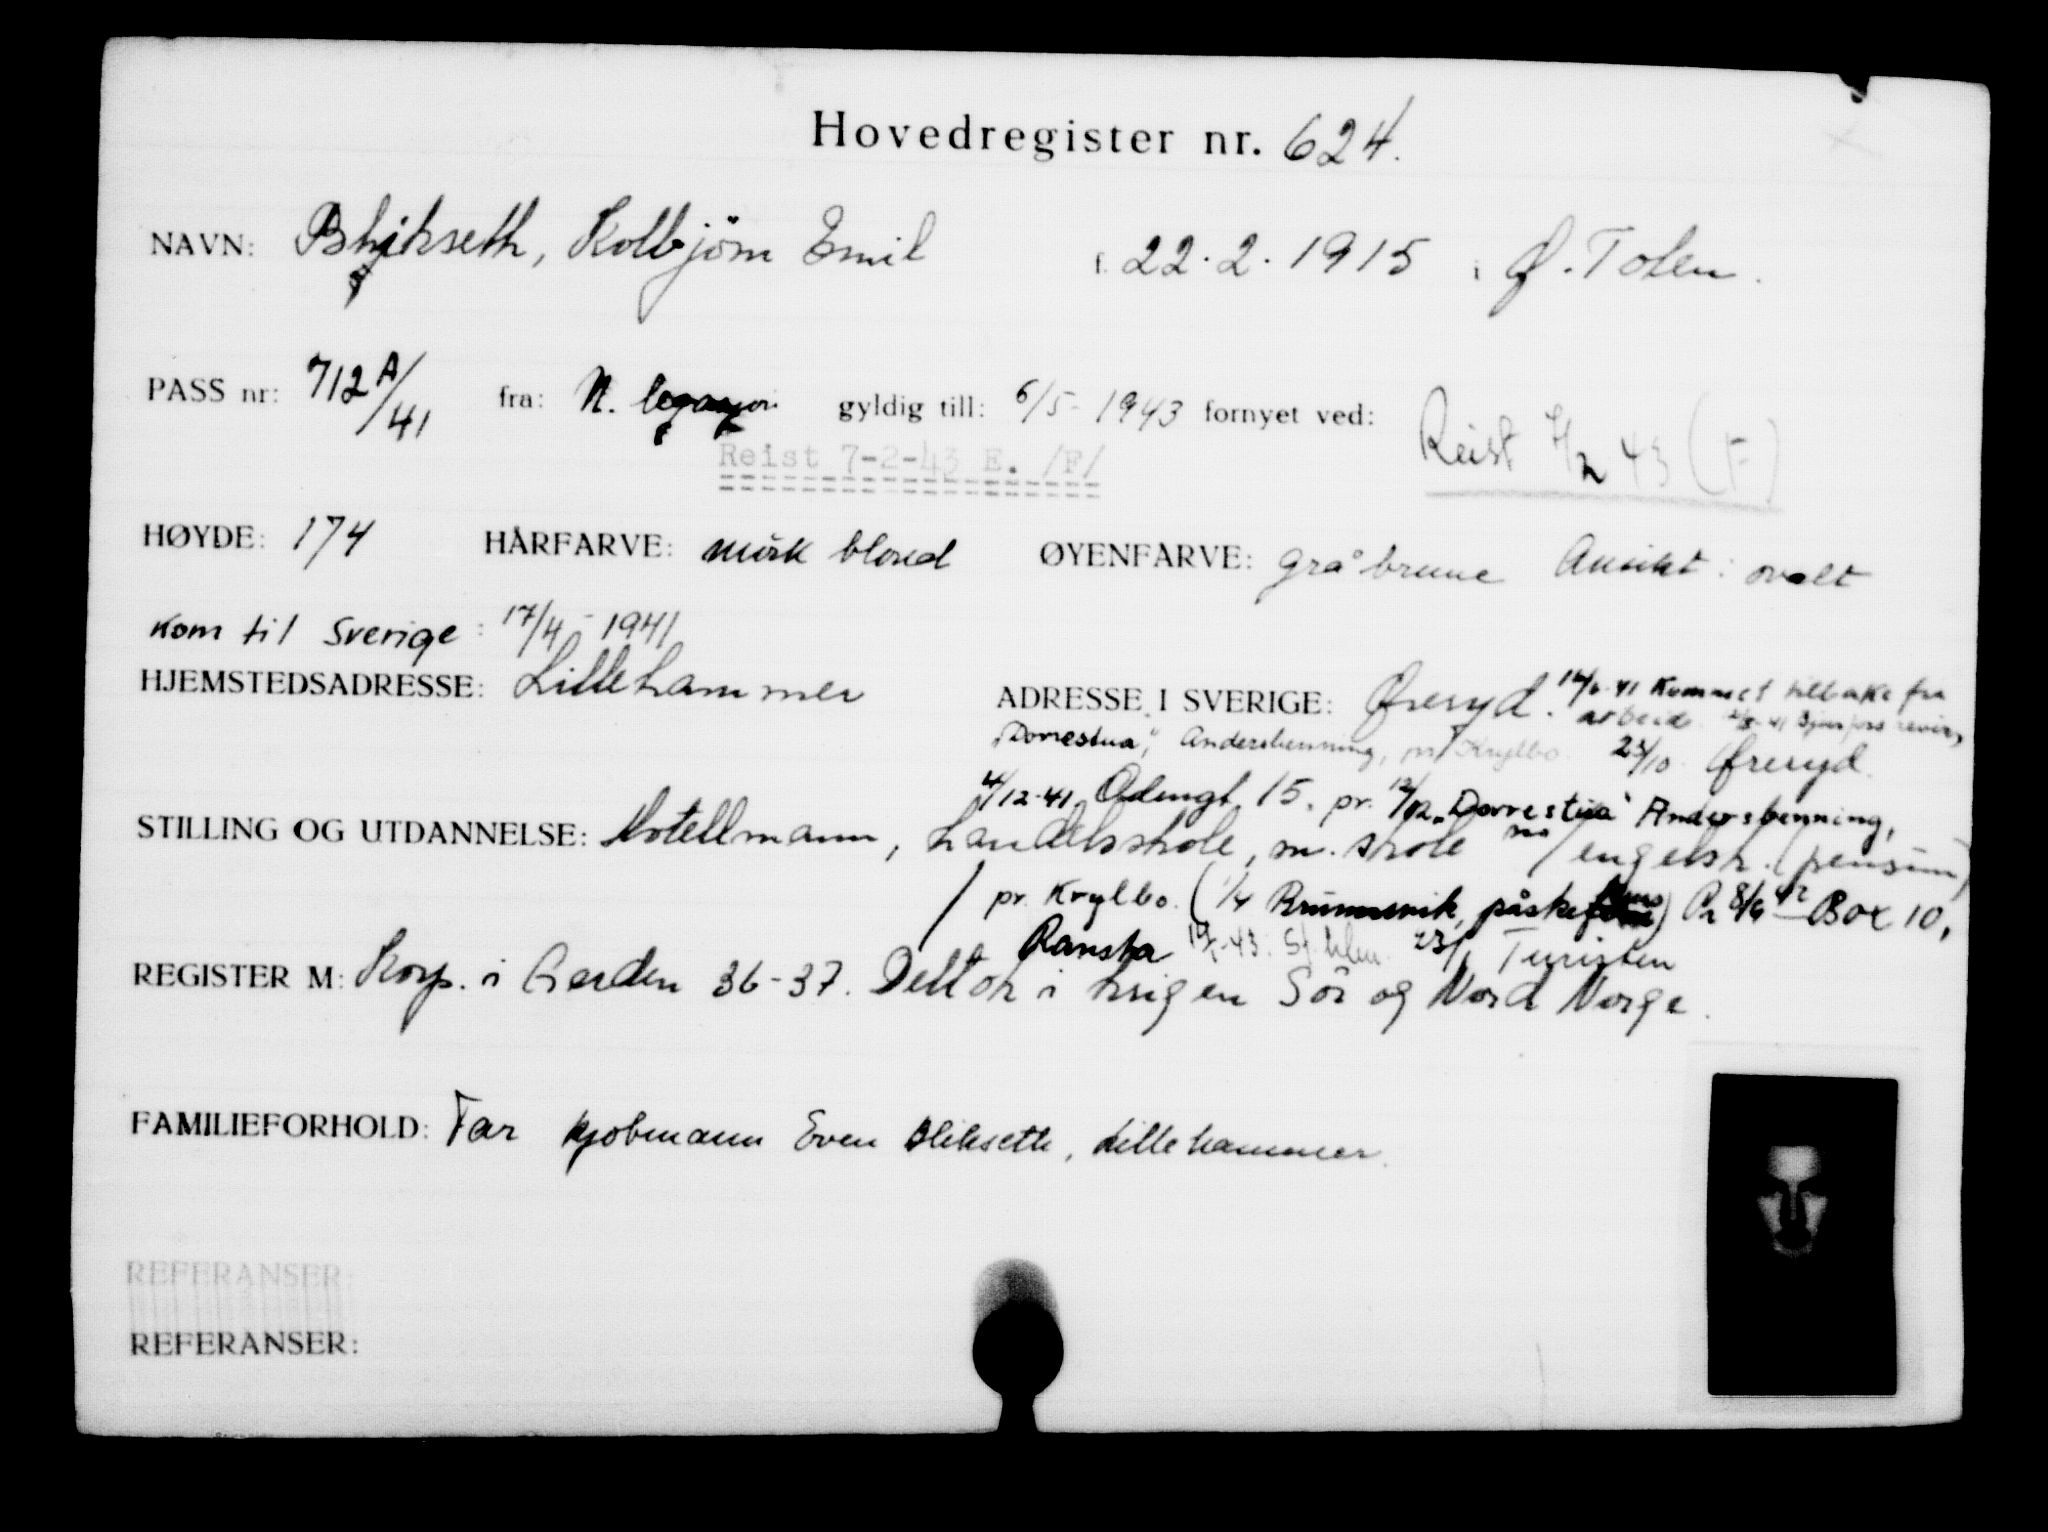 Hovedregister nr. 624.
NAVN: Blikseth, Kolbjörn Emil f. 22.2.1915 i Ø. Toten.
PASS nr: 712A/41 fra: N. legasjon gyldig till: 6/5-1943 fornyet ved: Reist 7/2 43 (F)
Reist 7-2-43 E. /F/
HØYDE: 174 HÅRFARVE: mörk blond ØYENFARVE: gråbrune Ansikt: ovalt
Kom til Sverige: 17/4-1941
HJEMSTEDSADRESSE: Lillehammer ADRESSE I SVERIGE: Øreryd. Kommet tilbake fra
arbeid
"Dorrestua", Andersbenning, pr Krylbo. 23/10 Øreryd.
4/12-41 Odengt 15. pr. 12/12 "Dorrestua" Andersbenning,
STILLING OG UTDANNELSE: Hotellmann, handelsskole, m. skole m/ engelsk. (pensum)
/ pr. Krylbo. (1/4 Brunnsvik, påske) Pr 8/6 42 Box 10,
Ransta 19/1-43: St.hlm. 23/1 Turisten
REGISTER M: Korp. i Garden 36-37. Deltok i krigen Sör og Nord Norge.
FAMILIEFORHOLD: Far kjøbmann Even Blikseth, Lillehammer.
REFERANSER:
REFERANSER: